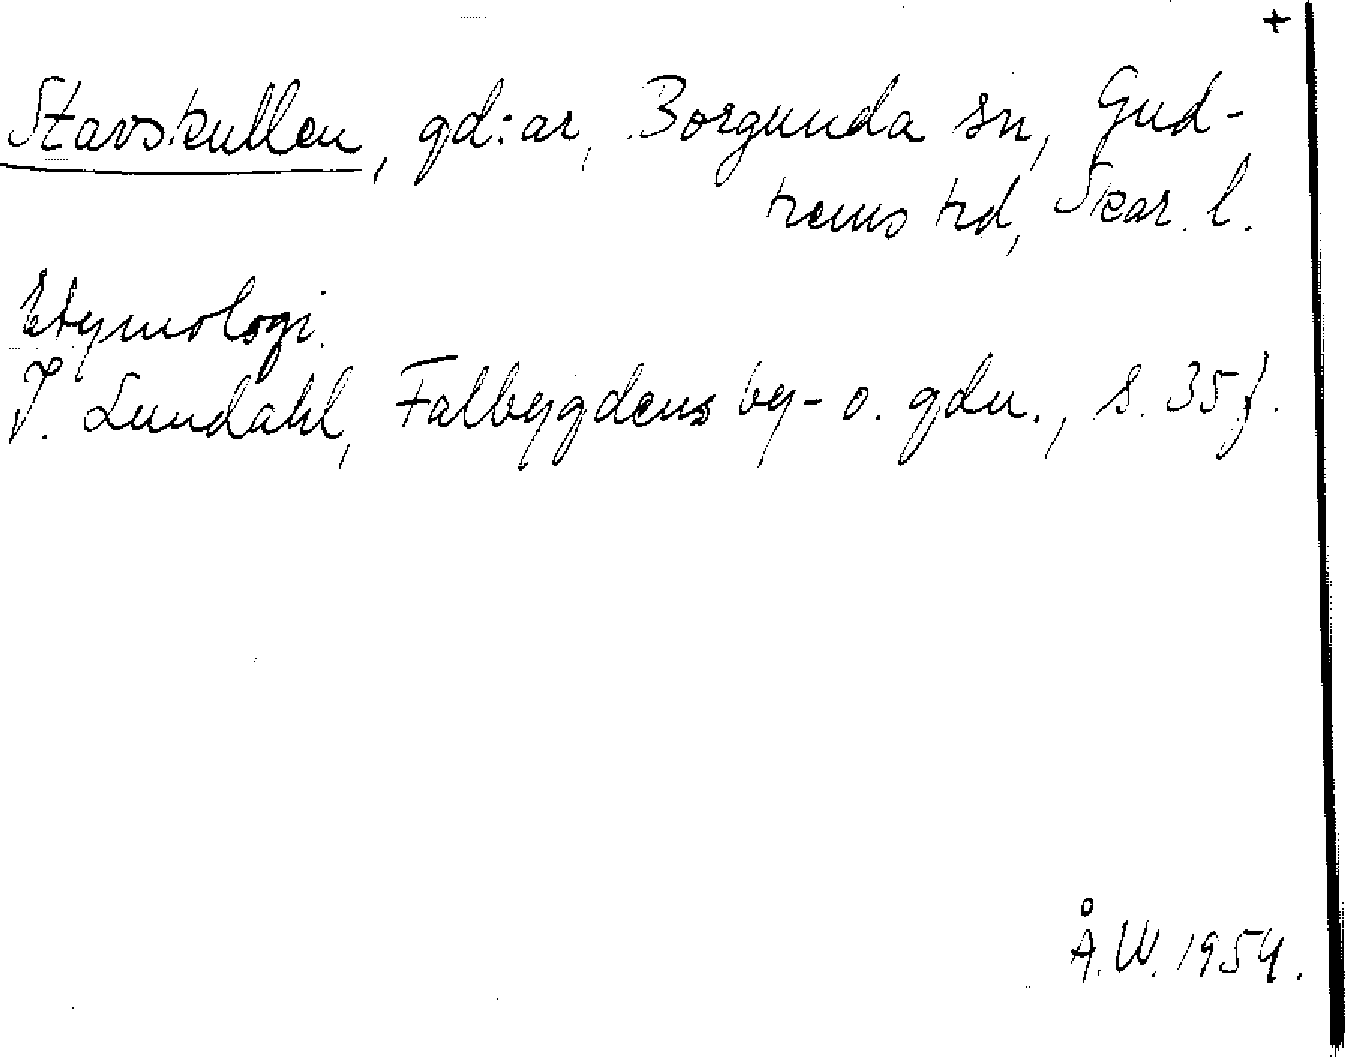 +
Stavskullen, gd:ar, Borgunda sn, Gud-
hems hd, Skar. l.
Etymologi.
I. Lundahl, Falbygdens by- o. gdn., s. 35 f.
Å. W. 1954.